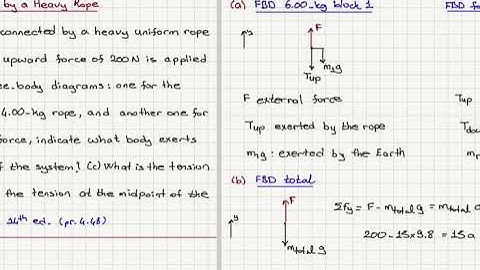 by a Heavy Rope
connected by a heavy uniform rope
upward force of 200N is applied
body diagrams: one for the
4.00-kg rope, and another one for
force, indicate what body exerts
the system? (c) What is the tension
the tension at the midpoint of the
14th ed. (pr. 4.48)
(a) FBD 6.00-kg block 1
y
F
m1g
Tup
F external force
Tup exerted by the rope
m1g: exerted by the Earth
(b) FBD total
y
F
mtotal g
ΣFy = F - mtotal g = mtotal a
200 - 15×9.8 = 15a
FBD
Tup